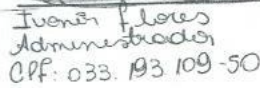 Ivonir Flores
Administrador
CPF: 033.193.109-50